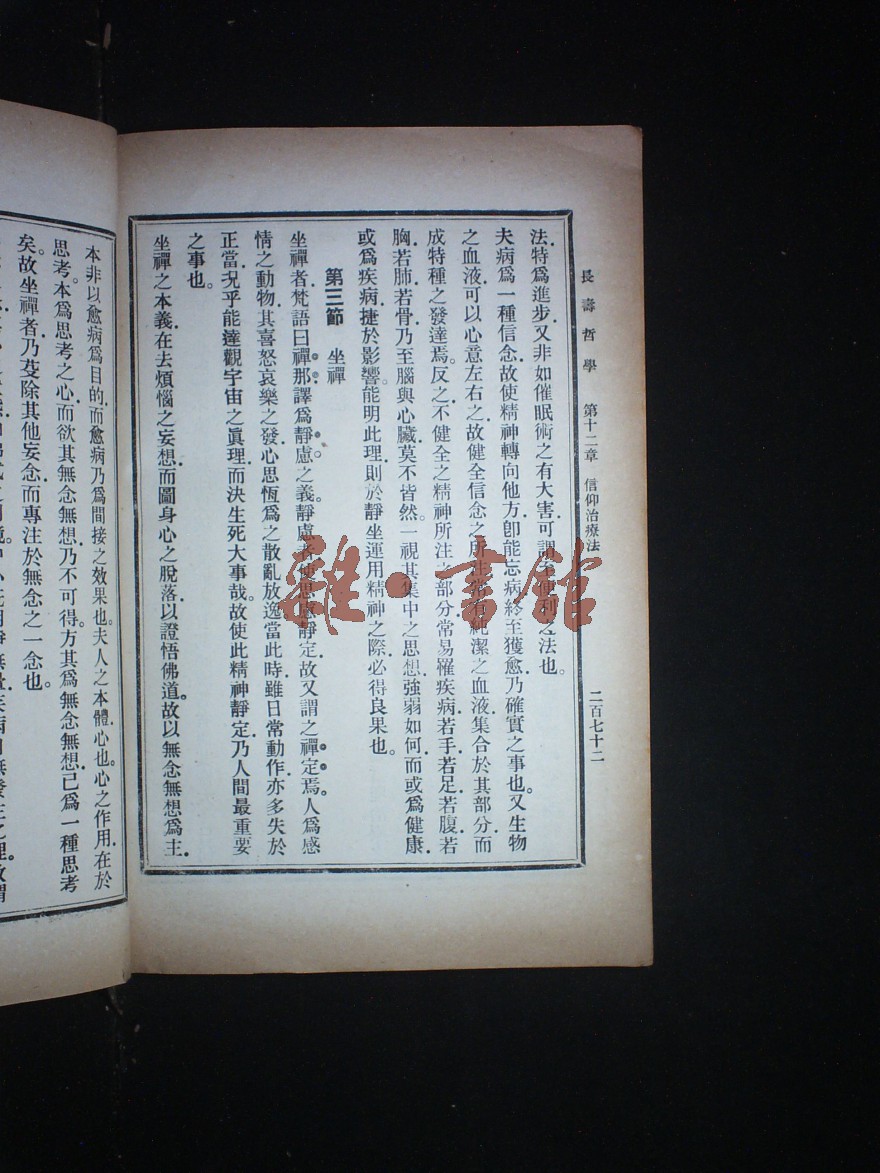 長壽哲學 第十二章 信仰治療法 二百七十二
法特爲進步又非如催眠術之有大害可謂至便利之法也。
夫病爲一種信念故使精神轉向他方卽能忘病終至獲愈乃確實之事也。又生物
之血液可以心意左右之故健全信念之所注常有純潔之血液集合於其部分而
成特種之發達焉。反之不健全之精神所注之部分常易罹疾病若手若足若腹若
胸若肺若骨乃至腦與心臟莫不皆然一視其集中之思想強弱如何而或爲健康
或爲疾病捷於影響能明此理則於靜坐運用精神之際必得良果也。
第三節 坐禪
坐禪者梵語曰禪那譯爲靜慮之義靜慮者使思慮靜定故又謂之禪定焉。人爲感
情之動物其喜怒哀樂之發心思恆爲之散亂放逸當此時雖日常動作亦多失於
正當況乎能達觀宇宙之眞理而決生死大事哉。故使此精神靜定乃人間最重要
之事也。
坐禪之本義在去煩惱之妄想而圖身心之脫落以證悟佛道。故以無念無想爲主
本非以愈病爲目的而愈病乃爲間接之效果也。夫人之本體心也。心之作用在於
思考。本爲思考之心而欲其無念無想乃不可得。方其爲無念無想已爲一種思考
矣。故坐禪者乃芟除其他妄念而專注於無念之一念也。
雜·書館